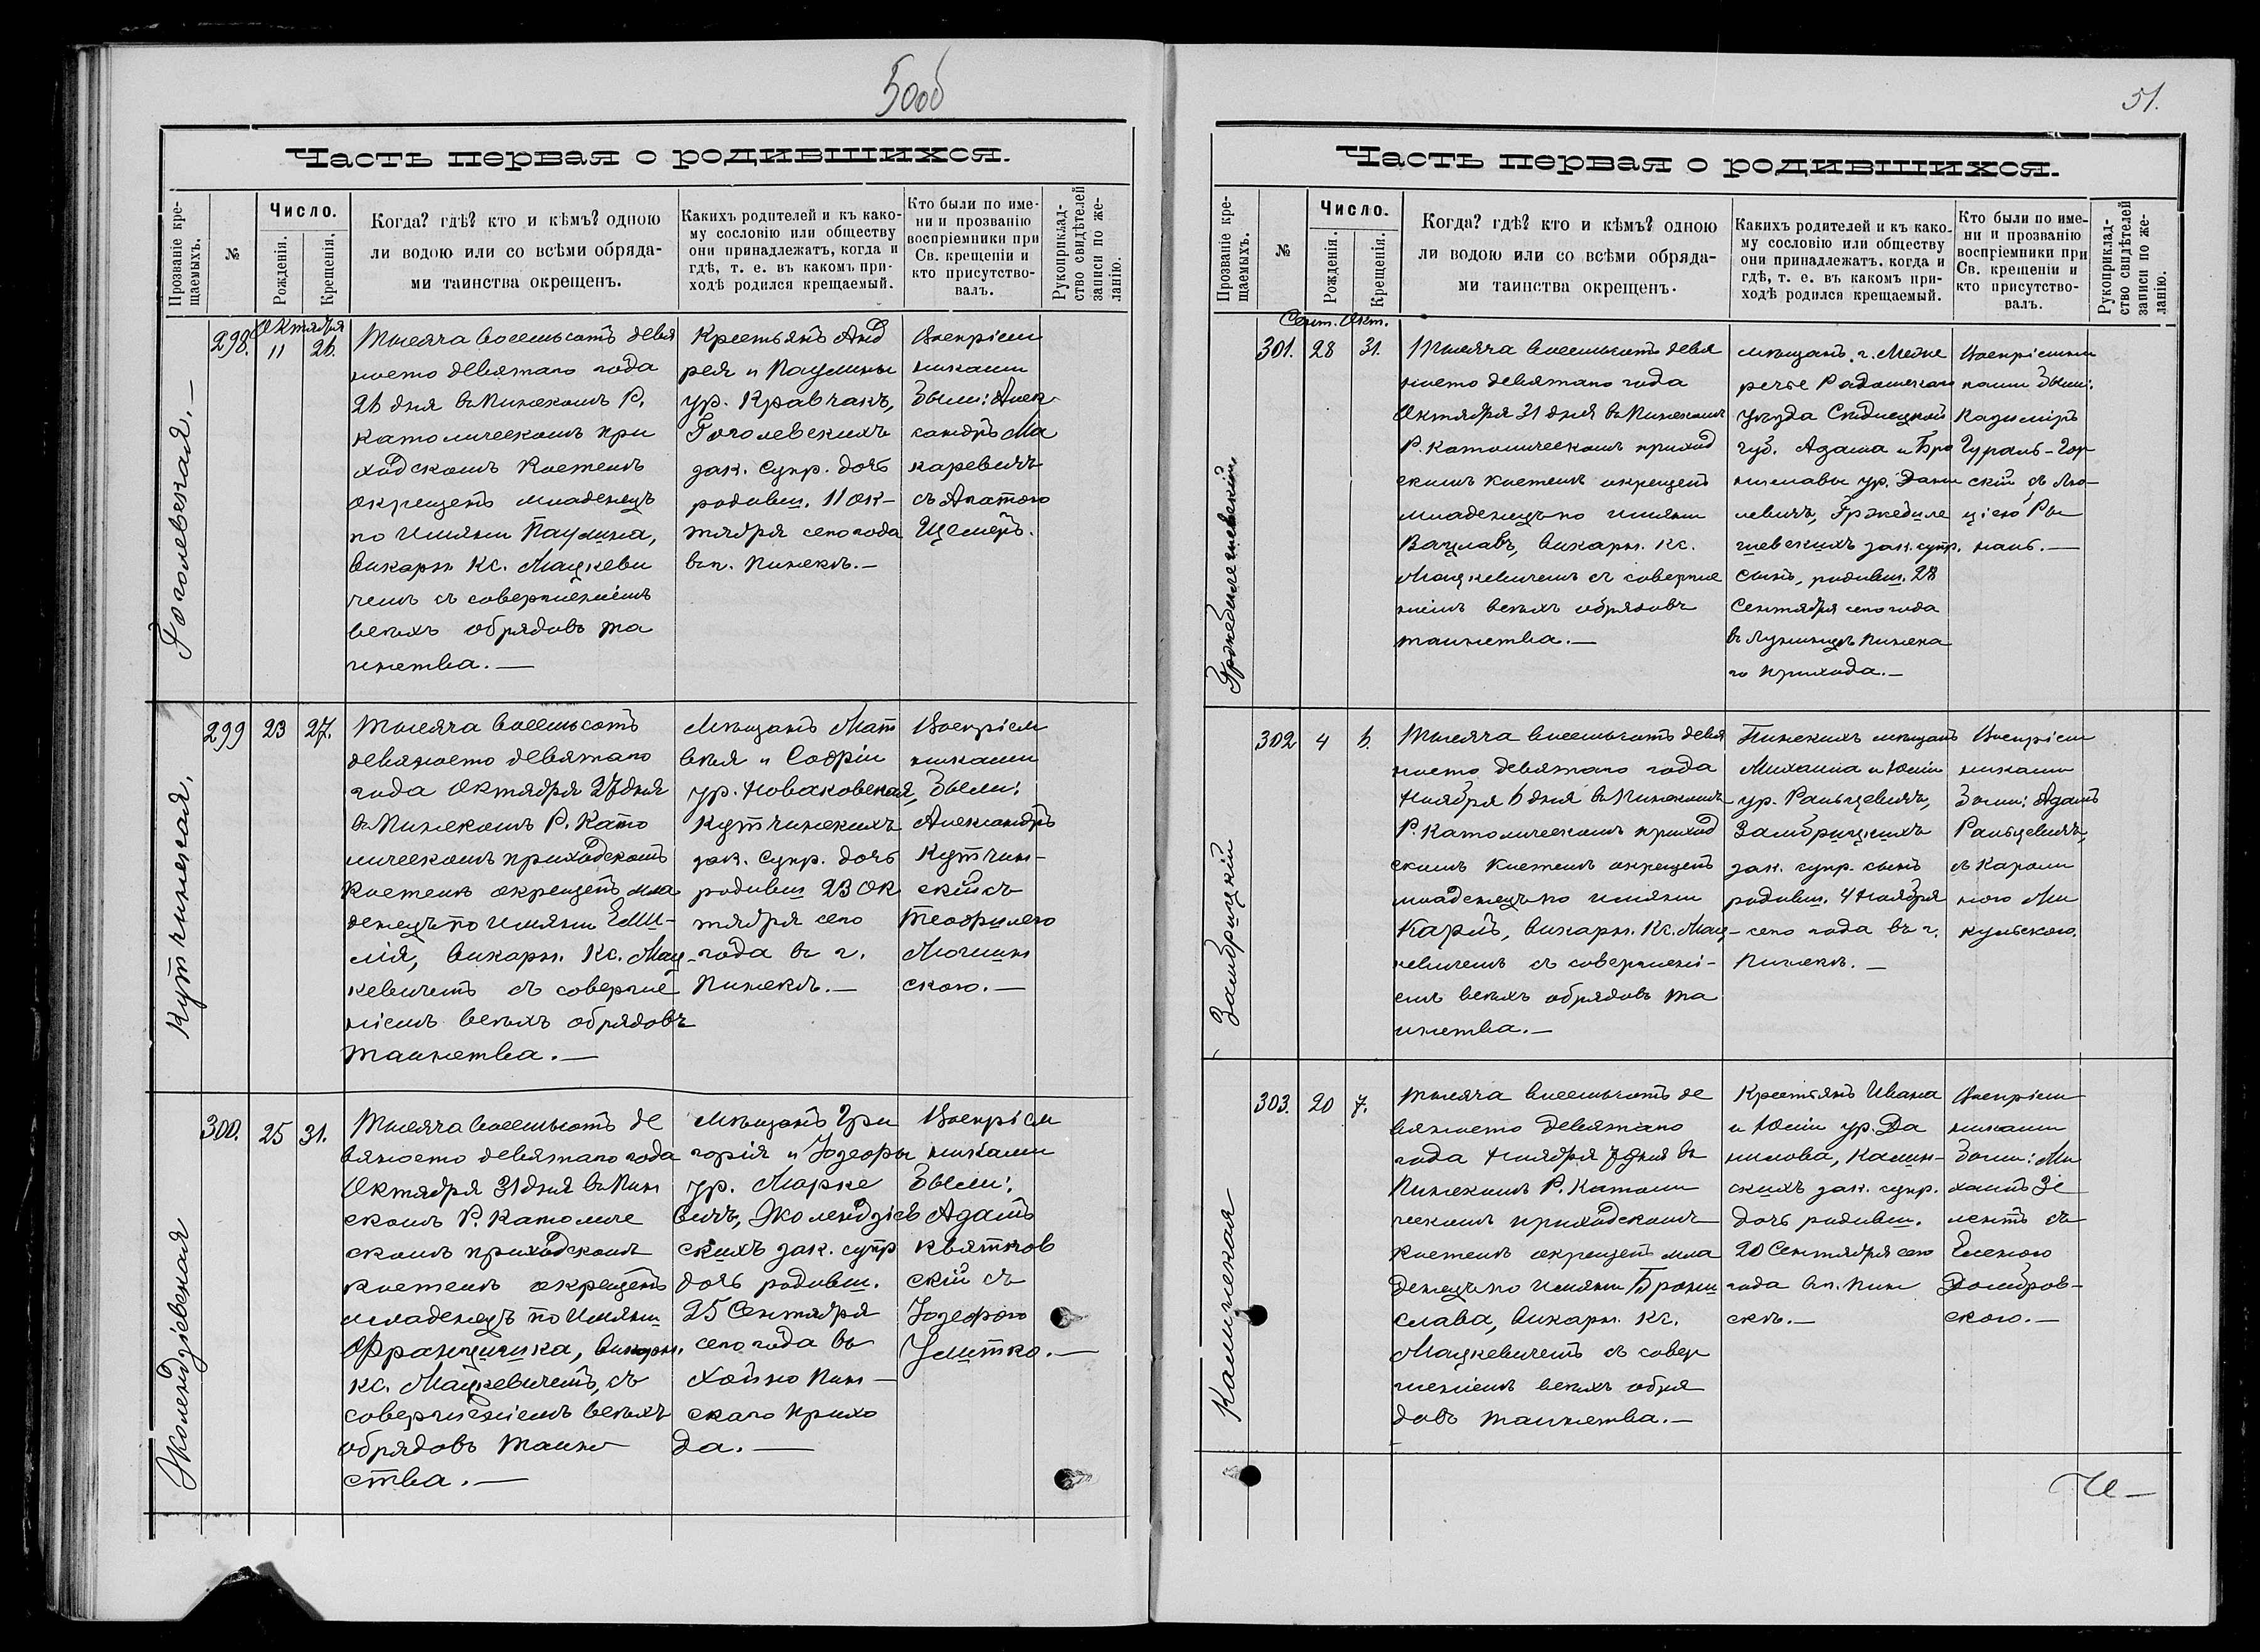 50об
Часть первая о родившихся.
Прозваніе кре-
щаемыхъ.
№
Число.
Рожденія.
Крещенія.
Когда? гдѣ? кто и кѣмъ? одною
ли водою или со всѣми обряда-
ми таинства окрещенъ.
Какихъ родителей и къ како-
му сословію или обществу
они принадлежатъ, когда и
гдѣ, т. е. въ какомъ при-
ходѣ родился крещаемый.
Кто были по име-
ни и прозванію
воспріемники при
Св. крещеніи и
кто присутство-
валъ.
Рукоприклад-
ство свидѣтелей
записи по же-
ланію.
Гоголевская.—
298.
Октября
11
26.
Тысяча восемьсотъ девя
носто девятаго года
26 дня въ Пинскомъ Р.
Католическомъ при
ходскомъ Костелѣ
окрещенъ младенецъ
по Имяни Паулина,
викарн. Кс. Мацкеви
чемъ съ совершеніемъ
всѣхъ обрядовъ та
инства.—
Крестьянъ Анд
рея и Паулины
ур. Кравчакъ,
Гоголевскихъ
зак. супр. дочь
родивш. 11 Ок-
тября сего года
въ г. Пинскѣ.—
Воспріем
никами
были: Алек
сандръ Ма
каревичъ
съ Агатою
Щемеръ.
Кутчинская.
299
23
27.
Тысяча восемьсотъ
девяносто девятаго
года Октября 27 дня
въ Пинскомъ Р. Като
лическомъ приходскомъ
Костелѣ окрещенъ мла
денецъ по Имяни Еми-
лія, викарн. Кс. Мац-
кевичемъ съ соверше
ніемъ всѣхъ обрядовъ
таинства.—
Мѣщанъ Мат
вѣя и Софіи
ур. Новаковская,
Кутчинскихъ
зак. супр. дочь
родивш 23 Ок
тября сего
года въ г.
Пинскѣ.—
Воспріем
никами
были:
Александръ
Кутчин-
скій съ
Теофилею
скою.—
Жолендзіевская
300.
25
31.
Тысяча восемьсотъ де
вяносто девятаго года
Октября 31 дня въ Пин
скомъ Р. Католиче
скомъ приходскомъ
Костелѣ окрещенъ
младенецъ по Имяни
Францишка, викарн.
кс. Мацкевичемъ, съ
совершеніемъ всѣхъ
обрядовъ таин
ства.—
Мѣщанъ Гри
горія и Юзефы
ур. Марке
вичъ, Жолендзіев
скихъ зак. супр
дочь родивш.
25 Сентября
сего года въ
Хойно Пин-
скаго прихо
да.—
Воспріем
никами
были:
Адамъ
Квятков
скій съ
Юзефою
51.
Часть первая о родившихся.
Прозваніе кре-
щаемыхъ.
№
Число.
Рожденія.
Крещенія.
Когда? гдѣ? кто и кѣмъ? одною
ли водою или со всѣми обряда-
ми таинства окрещенъ.
Какихъ родителей и къ како-
му сословію или обществу
они принадлежатъ. когда и
гдѣ, т. е. въ какомъ при-
ходѣ родился крещаемый.
Кто были по име-
ни и прозванію
воспріемники при
Св. крещеніи и
кто присутство-
валъ.
Рукоприклад-
ство свидѣтелей
записи по же-
ланію.
301.
Сент. Окт.
28
31.
Тысяча восемьсотъ девя
носто девятаго года
Октября 31 дня въ Пинскомъ
Р. Католическомъ приход
скомъ Костелѣ окрещенъ
младенецъ по имяни
Вацлавъ, викарн. кс.
Мацкевичемъ съ соверше
ніемъ всѣхъ обрядовъ
таинства.—
мѣщанъ г. Межи
речье Радомскаго
уѣзда Сѣдлецкой
губ. Адама и Бро
ниславы ур. Дани
левичъ, Гржебиле
чаевскихъ зак. супр.
сынъ, родивш. 28
Сентября сего года
въ Лунинцѣ Пинска
го прихода.—
Воспріемни
ками были:
Казиміръ
Гураль-Гор
скій съ Лю-
ціею
Замбрицкій
302
4
6.
Тысяча восемьсотъ девя
носто девятаго года
Ноября 6 дня въ Пинскомъ
Р. Католическомъ приход
скомъ Костелѣ окрещенъ
младенецъ по имяни
Карлъ, викарн. Кс. Мац-
кевичемъ съ совершені-
емъ всѣхъ обрядовъ та
инства.—
Пинскихъ мѣщанъ
Михаила и Юліи
ур. Ральцевичъ,
Замбрицкихъ
зак. супр. сынъ
родивш. 4 Ноября
сего года въ г.
Пинскѣ.—
Воспріем
никами
были: Адамъ
Ральцевичъ,
съ Кароли
ною Ми
кульскою.
Калинская
303.
20
7.
Тысяча восемьсотъ де
вяносто девятаго
года Ноября 7 дня въ
Пинскомъ Р. Католи
ческомъ приходскомъ
Костелѣ окрещенъ мла
денецъ по имяни Брони
слава, викарн. Кс.
Мацкевичемъ съ совер
шеніемъ всѣхъ обря
довъ таинства.—
Крестьянъ Ивана
и Юліи ур. Да
нилова, Калин-
скихъ зак. супр.
дочь родивш.
20 Сентября сего
года въ г. Пин
скѣ.—
Воспріем
никами
были: Ми
хаилъ Зе
лентъ съ
Еленою
Домбров-
скою.—